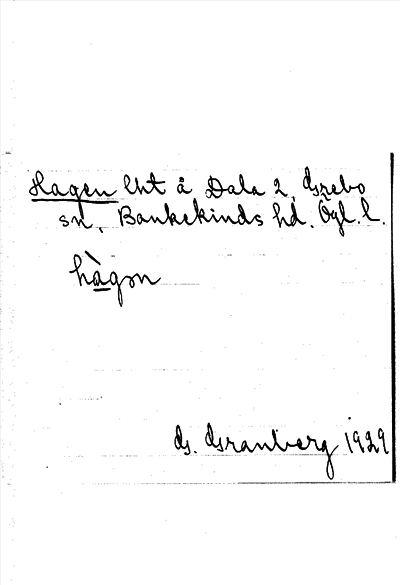 Hagen lht å Dala 2, Grebo
sn, Bankekinds hd. Ögl. l.
hàgən
G. Granberg 1929